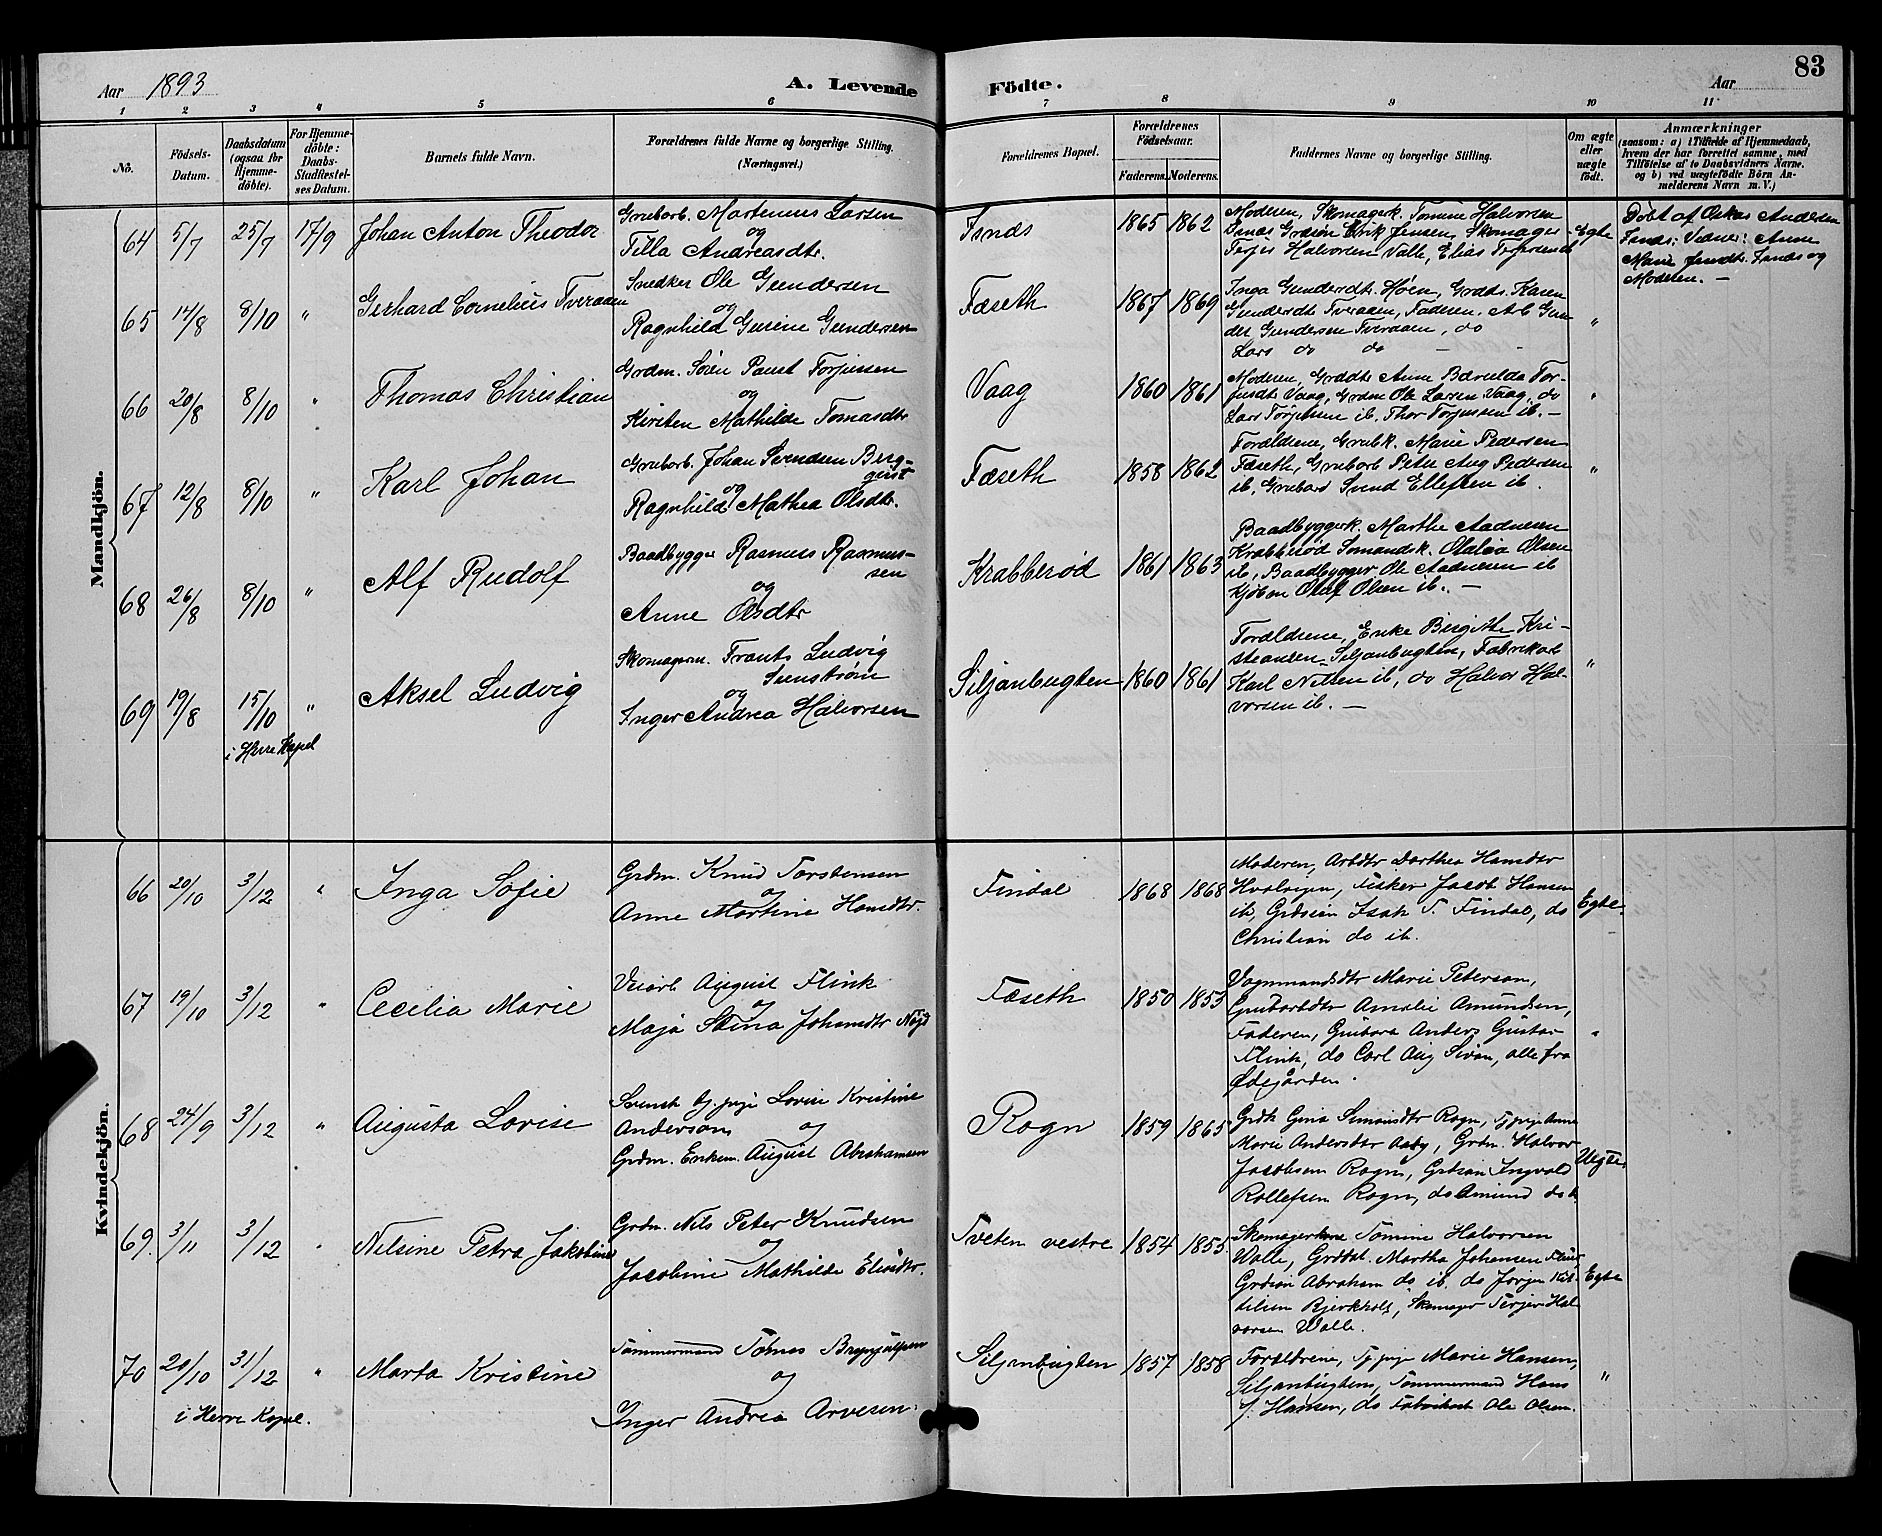 Aar 1893
A. Levende Födte.
Aar
83
1 2 3 4 5 6 7 8 9 10 11
No.
Födsels-Datum.
Daabsdatum (ogsaa for Hjemme-döbte).
For Hjemme-döbte: Daabs-Stadfestel-ses Datum.
Barnets fulde Navn.
Forældrenes fulde Navne og borgerlige Stilling. (Næringsvei.)
Forældrenes Bopæl.
Forældrenes Födselsaar.
Faderens. Moderens.
Faddernes Navne og borgerlige Stilling.
Om ægte eller uægte födt.
Anmærkninger
(saasom: a) i Tilfælde af Hjemmedaab,
hvem der har forrettet samme, med
Tilföielse af to Daabsvidners Navne.
og b) ved uægtefödte Börn An-
melderens Navn m. V.)
Mandkjön.
64 5/7 25/7 17/9 Johan Anton Theodor
Grubarb. Martenius Larsen
og
Tilla Andreasdtr.
1865 1862
Moderen, Skomagerk. Tomine Halvorsen
Grdsön Erik Jensen, Skomager
Terjes Halvorsen Valle, Elias Terjesen ib
Egte
Döbt af Oskar Andersen
Vidner: Anne
Marie
Moderen. —
65 14/8 8/10 " Gerhard Cornelius Tveraaen
Snedker Ole Gundersen
og
Ragnhild Gurine Gundersen
Fæseth 1867 1869
Inga Gundersdtr. Höen, Grdtr. Karen
Gundersdtr Tveraaen, Faderen, Arb Gun-
der Gundersen Tveraaen, do
Lars do do — -
"
66 20/8 8/10 " Thomas Christian
Grdm. Sören Paust Torjussen
og
Kirsten Mathilde Tomasdtr
Vaag 1860 1861
Moderen, Grddtr Anne Tor-
jusdtr Vaag, Grdm Ole Larsen Vaag, do
Lars Torjussen ib, Thor Torjussen ib. —
"
67 12/8 8/10 " Karl Johan
Grubarb. Johan Svendsen Berg-
quist
og
Ragnhild Mathea Olsdtr.
Fæseth 1858 1862
Forældrene, Grubk. Marie Pedersen
Fæseth, Grubarb Peter Aug Pedersen
ib, Grubarb Svend Ellefsen ib.
"
68 26/8 8/10 " Alf Rudolf
Baadbygger Rasmus Rasmus-
sen
og
Anne Olsdtr
Krabberød 1861 1863
Baadbyggerk. Marthe Aadnesen
Krabberød Sømandsk. Olava Olsen
ib, Baadbygger Ole Aadnesen ib
Olaf Olsen ib. —
69 19/8 15/10 " Aksel Ludvig
i Herre Kapel
Skomagerm. Frants Ludvig
Svenström
og
Inger Andrea Halvorsen
Siljanbugten 1860 1861
Forældrene, Enke Birgitte Kri-
stiansen Siljanbugten, Fabrikarb
Karl Nilsen ib, do Halvor Hal-
vorsen ib. —
"
Kvindekjön.
66 20/10 3/12 " Inga Sofie
Grdm. Knud Torstensen
og
Anne Martine Hansdtr.
Findal 1868 1868
Moderen, Arbdtr Dorthea Hansdtr
Fisker Jacob Hansen
ib, Grdsön Isak T. Findal, do
Christian do ib.
Egte.
67 19/10 3/12 " Cecilia Marie
Veiarb August Flink
og
Maja Stina Johansdtr
Fæseth 1850 1853
Vognmandsdtr Marie Peterson,
Grubarbdtr Amalie Amundsen,
Faderen, Grubarb Anders Gustav
Flink, do Carl Aug Svan, alle fra
Ødegården.
"
68 24/9 3/12 " Augusta Lovise
Svensk tj. pige Lovise Kristine
Anderson og
Grdm. Enkem. August Abrahamsen
Rogn 1859 1865
Grdk Gina Simonsdtr Rogn, Tj pige Anne
Marie Andersdtr Aasy, Grdm. Halvor
Jacobsen Rogn, Grdsön Ingvald
Rollefsen Rogn, do Amund do ib
Uegte.
69. 3/11 3/12 " Nilsine Petra Jakobine
Grdm. Nils Peter Knudsen
og
Jacobine Mathilde Eliasdtr.
Tveten vestre 1854 1855
Skomagerkone Tomine Halvorsen
Walle, Grddtr. Martha Johansen
Grdsön Abraham do ib. do Jörgen Kit-
tilsen Bjerkholt, Skomager Terjer Hal-
vorsen Walle.
Egte
70 20/10 31/12 " Marta Kristine
i Herre Kapel.
Tömmermand Tomas Brynjulfsen
og
Inger Andrea Arvesen.
Siljanbugten 1857 1858
Forældrene, Tj. pige Marie Hansen,
Siljanbugten, Tömmermand Hans
J. Hansen, do Fabrikarb Ole Olsen.
"